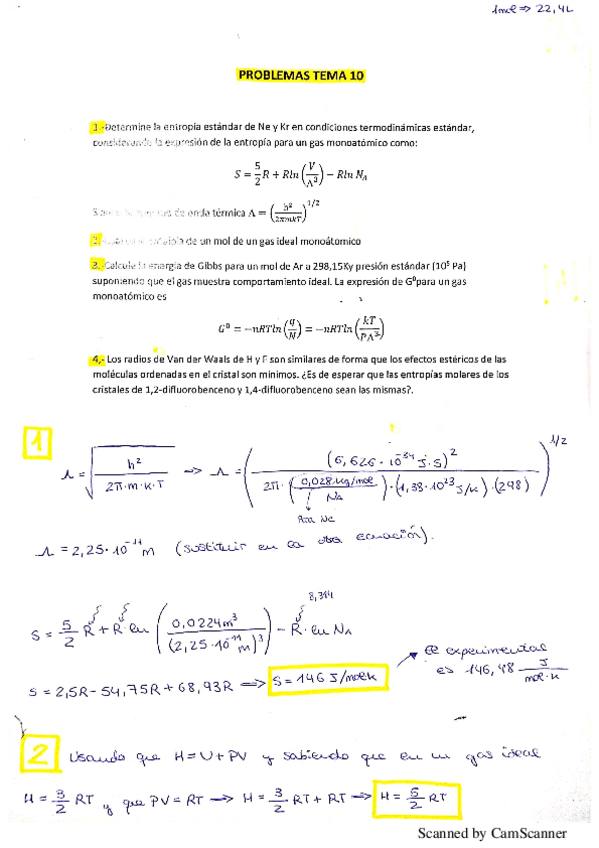 1mol => 22,4L
PROBLEMAS TEMA 10
1.-Determine la entropía estándar de Ne y Kr en condiciones termodinámicas estándar,
considerando la expresión de la entropía para un gas monoatómico como:
S = 5/2 R + Rln (V/Λ³) − Rln N_A
de onda térmica Λ = (h²/2πmkT)^1/2
2.- de un mol de un gas ideal monoátomico
3.-Calcule la energía de Gibbs para un mol de Ar a 298,15Ky presión estándar (10⁵ Pa)
suponiendo que el gas muestra comportamiento ideal. La expresión de G⁰para un gas
monoatómico es
G⁰ = −nRTln (q/N) = −nRTln (kT/PΛ³)
4.- Los radios de Van der Waals de H y F son similares de forma que los efectos estéricos de las
moléculas ordenadas en el cristal son mínimos. ¿Es de esperar que las entropías molares de los
cristales de 1,2-difluorobenceno y 1,4-difluorobenceno sean las mismas?.
1
Λ = √(h²/2π·m·k·T) => Λ = ((6,626·10⁻³⁴ J·S)²/2π·(0,028kg/mol/NA)·(1,38·10²³J/K)·(298))^1/2
Λ = 2,25·10⁻¹¹m (sustituir en la otra ecuación).
8,314
S = 5/2 R + R·ln (0,0224m³/(2,25·10⁻¹¹m)³) − R·ln NA
El experimental
es 146,48 J/mol·K
S = 2,5R − 54,75R + 68,93R => S = 146 J/molK
2 Usando que H=U+PV y sabiendo que en un gas ideal
H = 3/2 RT y que PV = RT → H = 3/2 RT + RT → H = 5/2 RT
Scanned by CamScanner